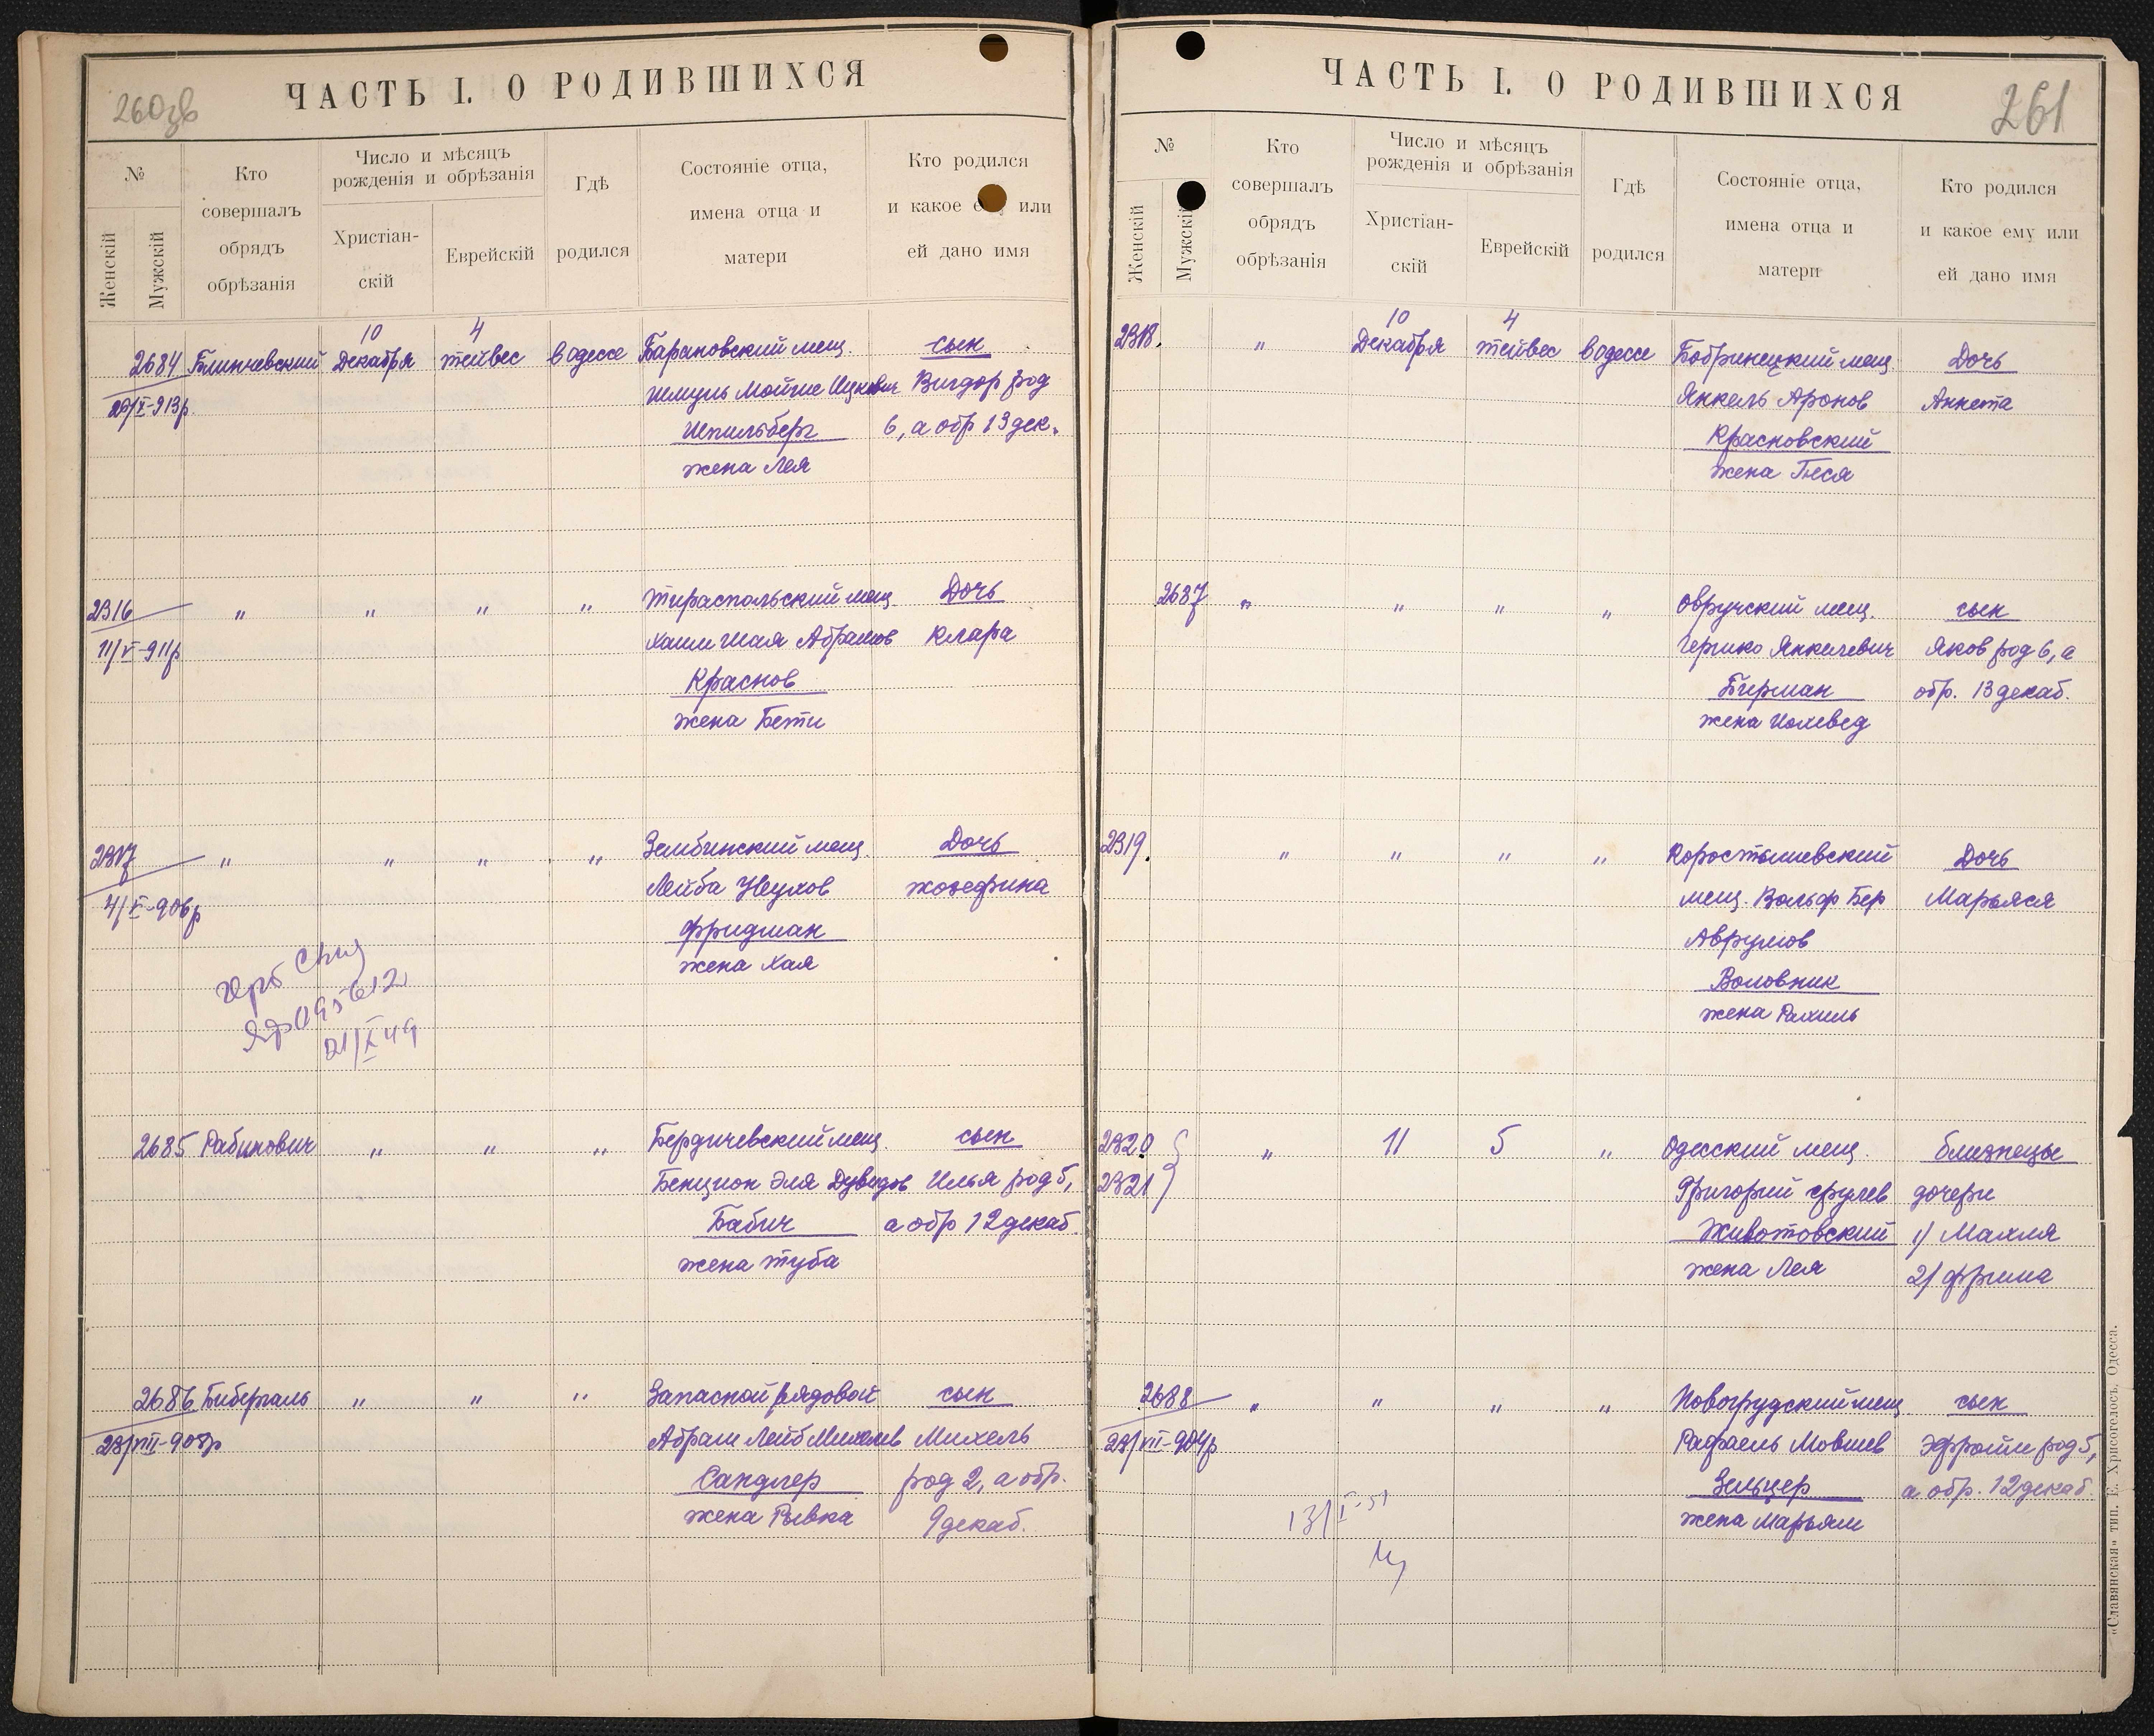 260зв
ЧАСТЬ I. О РОДИВШИХСЯ
№
Женскій
Мужскій
Кто совершалъ обрядъ обрѣзанія
Число и мѣсяцъ рожденія и обрѣзанія
Христіан-
скій
Еврейскій
Гдѣ родился
Состояніе отца,
имена отца и
матери
Кто родился
и какое ему или
ей дано имя
10 4
2684 Блинчевский Декабря тейвес в одессе Барановский мещ. сын
Шмуль Мойше Ицкович Вигдор род
Шпильберг 6, а обр 13 дек.
жена Лея
2316 " " " " Тираспольский мещ. Дочь
11/V-911р Хаим Шая Абрамов Клара
Краснов
жена Бети
2317 " " " " Зембинский мещ. Дочь
Лейба Жозефина
4/X-906р
Фридман
жена Хая
2685 Рабинович " " " Бердичевский мещ. сын
Бенцион Эля Дувидов Илья род 5,
Бабич а обр 12 декаб.
жена Туба
2686 Биберталь " " " Запасной рядовой сын
Абрам Лейб Михелев Михель
Сандлер род 2, а обр.
жена Рывка 9 декаб.
261
ЧАСТЬ I. О РОДИВШИХСЯ
№
Женскій
Мужскій
Кто
совершалъ
обрядъ
обрѣзанія
Число и мѣсяцъ
рожденія и обрѣзанія
Христіан-
скій
Еврейскій
Гдѣ
родился
Состояніе отца,
имена отца и
матери
Кто родился
и какое ему или
ей дано имя
10 4
2318. " Декабря тейвес в одессе Бобринецкий мещ. Дочь
Янкель Аронов Аннета
Красновский
жена Песя
2687 " " " " Овручский мещ. сын
Гершко Янкелевич Яков род 6, а
Бирман обр. 13 декаб.
жена Иохевед
2319. " " " " Коростышевский Дочь
мещ. Вольф Бер Марьяся
Аврумов
Воловник
жена Рахиль
2320 " 11 5 " Одесский мещ. близнецы
2321 Григорий Срулев дочери
Животовский 1) Махля
жена Лея 2) Фрима
2688 " " " " Новогрудский мещ. сын
Рафаель Мовшев Эфроим род 5,
Зельцер а обр. 12 декаб.
жена Марьям
13/I-51
«Славянская» тип. Е. Хрисогелосъ, Одесса.